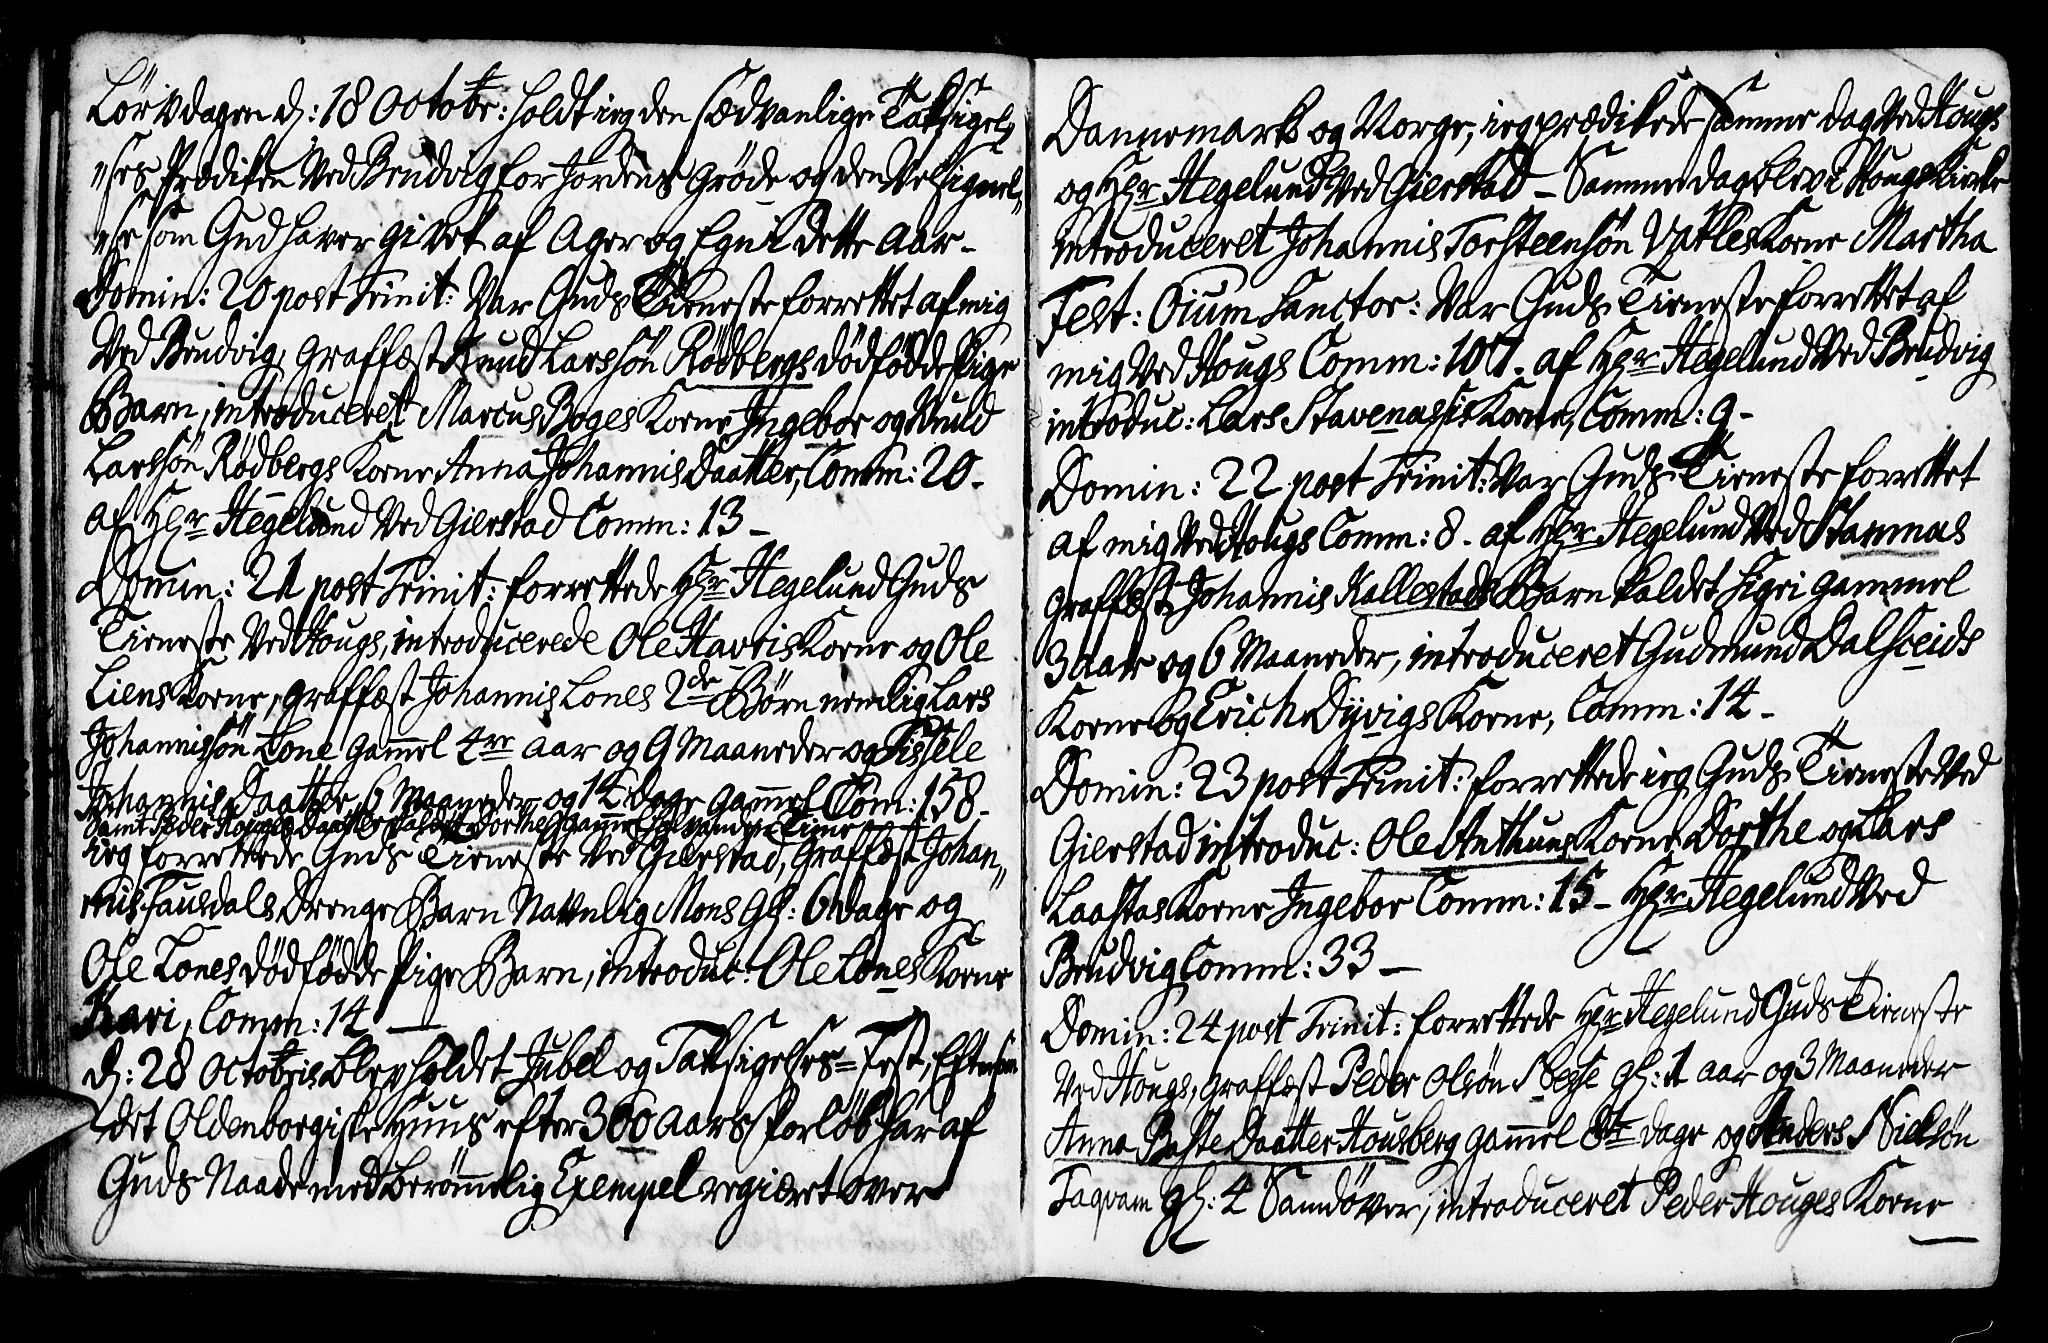 Löverdagen d: 18 Octobr: holdt ieg den sædvanlige Taksigel„
„ses Prædiken Ved Brudvig for Jordens Gröde og den Velsignel„
„se som Gud haver givet af Ager og Egn i dette Aar-
Domin: 20 post Trinit: Var Guds Tieneste forrettet af mig
Ved Brudvig, Graffæst Knud Larssön Rödbergs dödfödde Pige
Barn, introduceret Marcus Boges Kone Ingebor og Knud
Larssön Rödbergs Kone Anna Johannis Daatter, Comm: 20-
af Hr Hegelund Ved Gierstad Comm: 13-
Domin: 21 post Trinit: forrettede Hr Hegelund Guds
Tieneste Ved Hougs, introducerede Ole Havris Kone og Ole
Liens Kone, Graffæst Johannis Lones 2de Börn nemlig Lars
Johannissön Lone gamel 4re aar og 9 Maaneder og Sissele
Johannis Daatter 6 Maaneder og 14 dage gamel Com: 158-
Samt Peder Houges Daatter kaldet Dorthe
ieg forrettede Guds Tieneste Ved Gierstad, Graffæst Johan„
nis Fausdals Drenge Barn Navnlig Mons Gl: 6 dage og
Ole Lones dödfödde Pige Barn, introduc: Ole Lones Kone
Kari, Comm: 14 —
d: 28 Octobris blev holdet Jubel og Taksigelses=Fest, Efter som
det Oldenborgiske Huus efter 300 Aars forlöb har af
Guds Naade med berömmelig Exempel regieret over
Dannemark og Norge, ieg prædikede samme dag Ved Hougs
og Hr Hegelund Ved Gierstad- Samme dag blev i Hougs Kirke
introduceret Johannis Torsteensön Vatles Kone Martha
Fest: Oium Sanctor: Var Guds Tieneste forrettet af
mig Ved Hougs Comm: 107. af Hr Hegelund Ved Brudvig
introduc: Lars Stavenæssis Kone, Comm: 9-
Domin: 22 post Trinit: Var Guds Tieneste forrettet
af mig Ved Hougs Comm: 8- af Hr Hegelund Ved Stamnæs
Graffæst Johannis Kallestads Barn kaldet Sigri gammel
3 aar og 6 Maaneder, introduceret Gudmund Dalseids
Kone og Erich Dyvigs Kone, Comm: 14-
Domin: 23 post Trinit: forrettede ieg Guds Tieneste Ved
Gierstad introduc: Ole Anthuns Kone Dorthe og Lars
Laastas Kone Ingebor Comm: 15- Hr Hegelund Ved
Brudvig Comm: 33 —
Domin: 24 post Trinit: forrettede Hr Hegelund Guds Tieneste
Ved Hougs, Graffæst Peder Olsön gl: 1 aar og 3 Maaneder
Anna Daatter Housberg gamel 8te dage og Anders Nielsön
Taqvam gl: 4 Samdöver, introduceret Peder Houges Kone